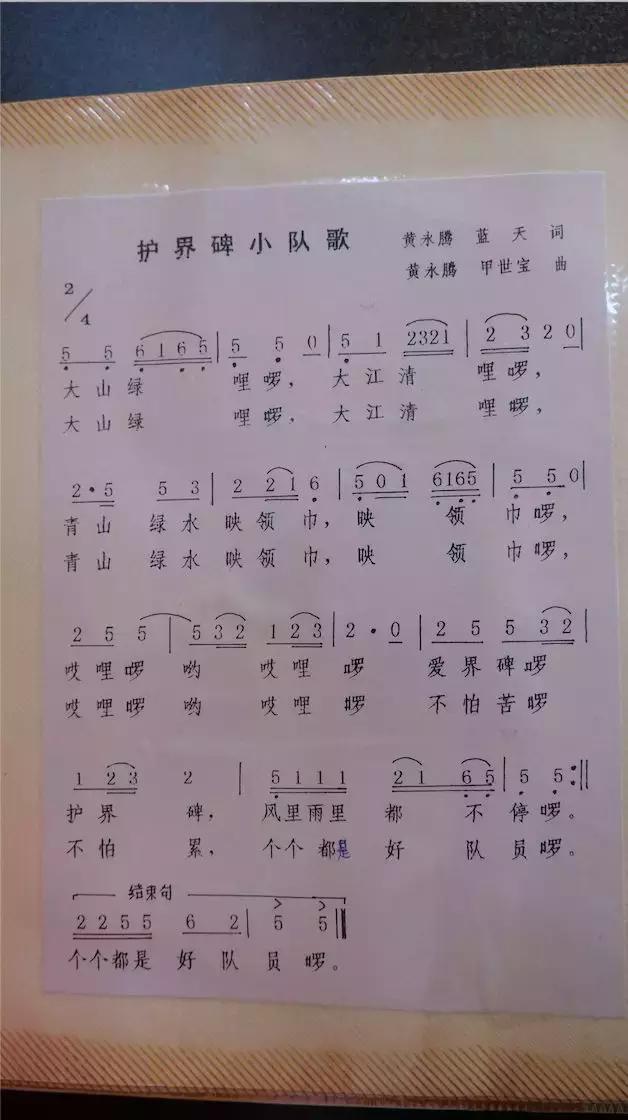 护界碑小队歌
黄永腾 蓝天 词
黄永腾 甲世宝 曲
2/4
5 5 6 1 6 5 | 5 5 0 | 5 1 2321 | 2 3 2 0 |
大山绿 哩啰，大江清 哩啰，
大山绿 哩啰，大江清 哩啰，
2·5 5 3 | 2 2 2 1 6 | 5 0 1 6165 | 5 5 0 |
青山 绿水 映领巾，映 领 巾啰，
青山 绿水 映领巾，映 领 巾啰，
2 5 5 | 5 3 2 1 2 3 | 2 · 0 | 2 5 5 3 2 |
哎哩啰 哟 哎哩 啰 爱界碑啰
哎哩啰 哟 哎哩 啰 不怕苦啰
1 2 3 2 | 5 1 1 1 2 1 6 5 | 5 5 :||
护界 碑，风里雨里 都 不停啰。
不怕 累，个个都是 好 队员啰。
结束句
2 2 5 5 6 2 | 5 5 ||
个个都是 好队 员啰。